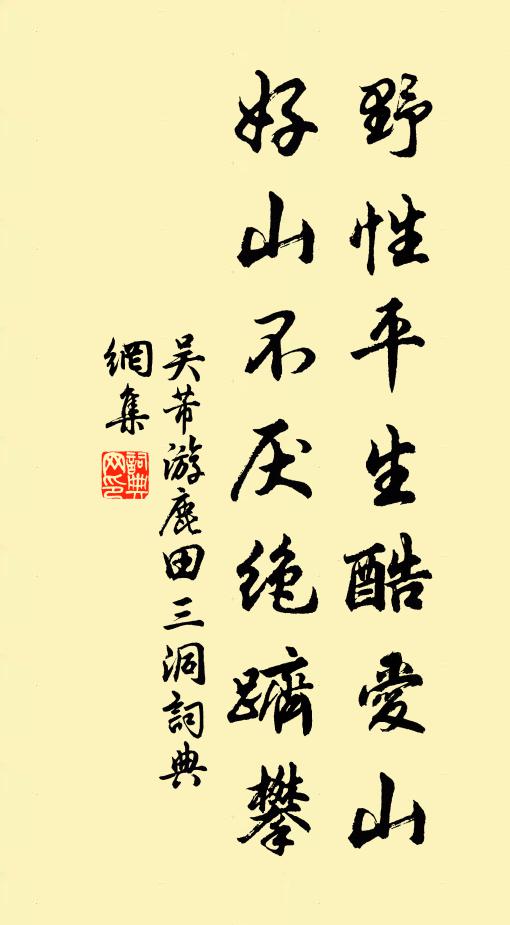 野性平生酷愛山
好山不厌絶躋攀
吴芾游鹿田三洞詞典
網集
詞典网印